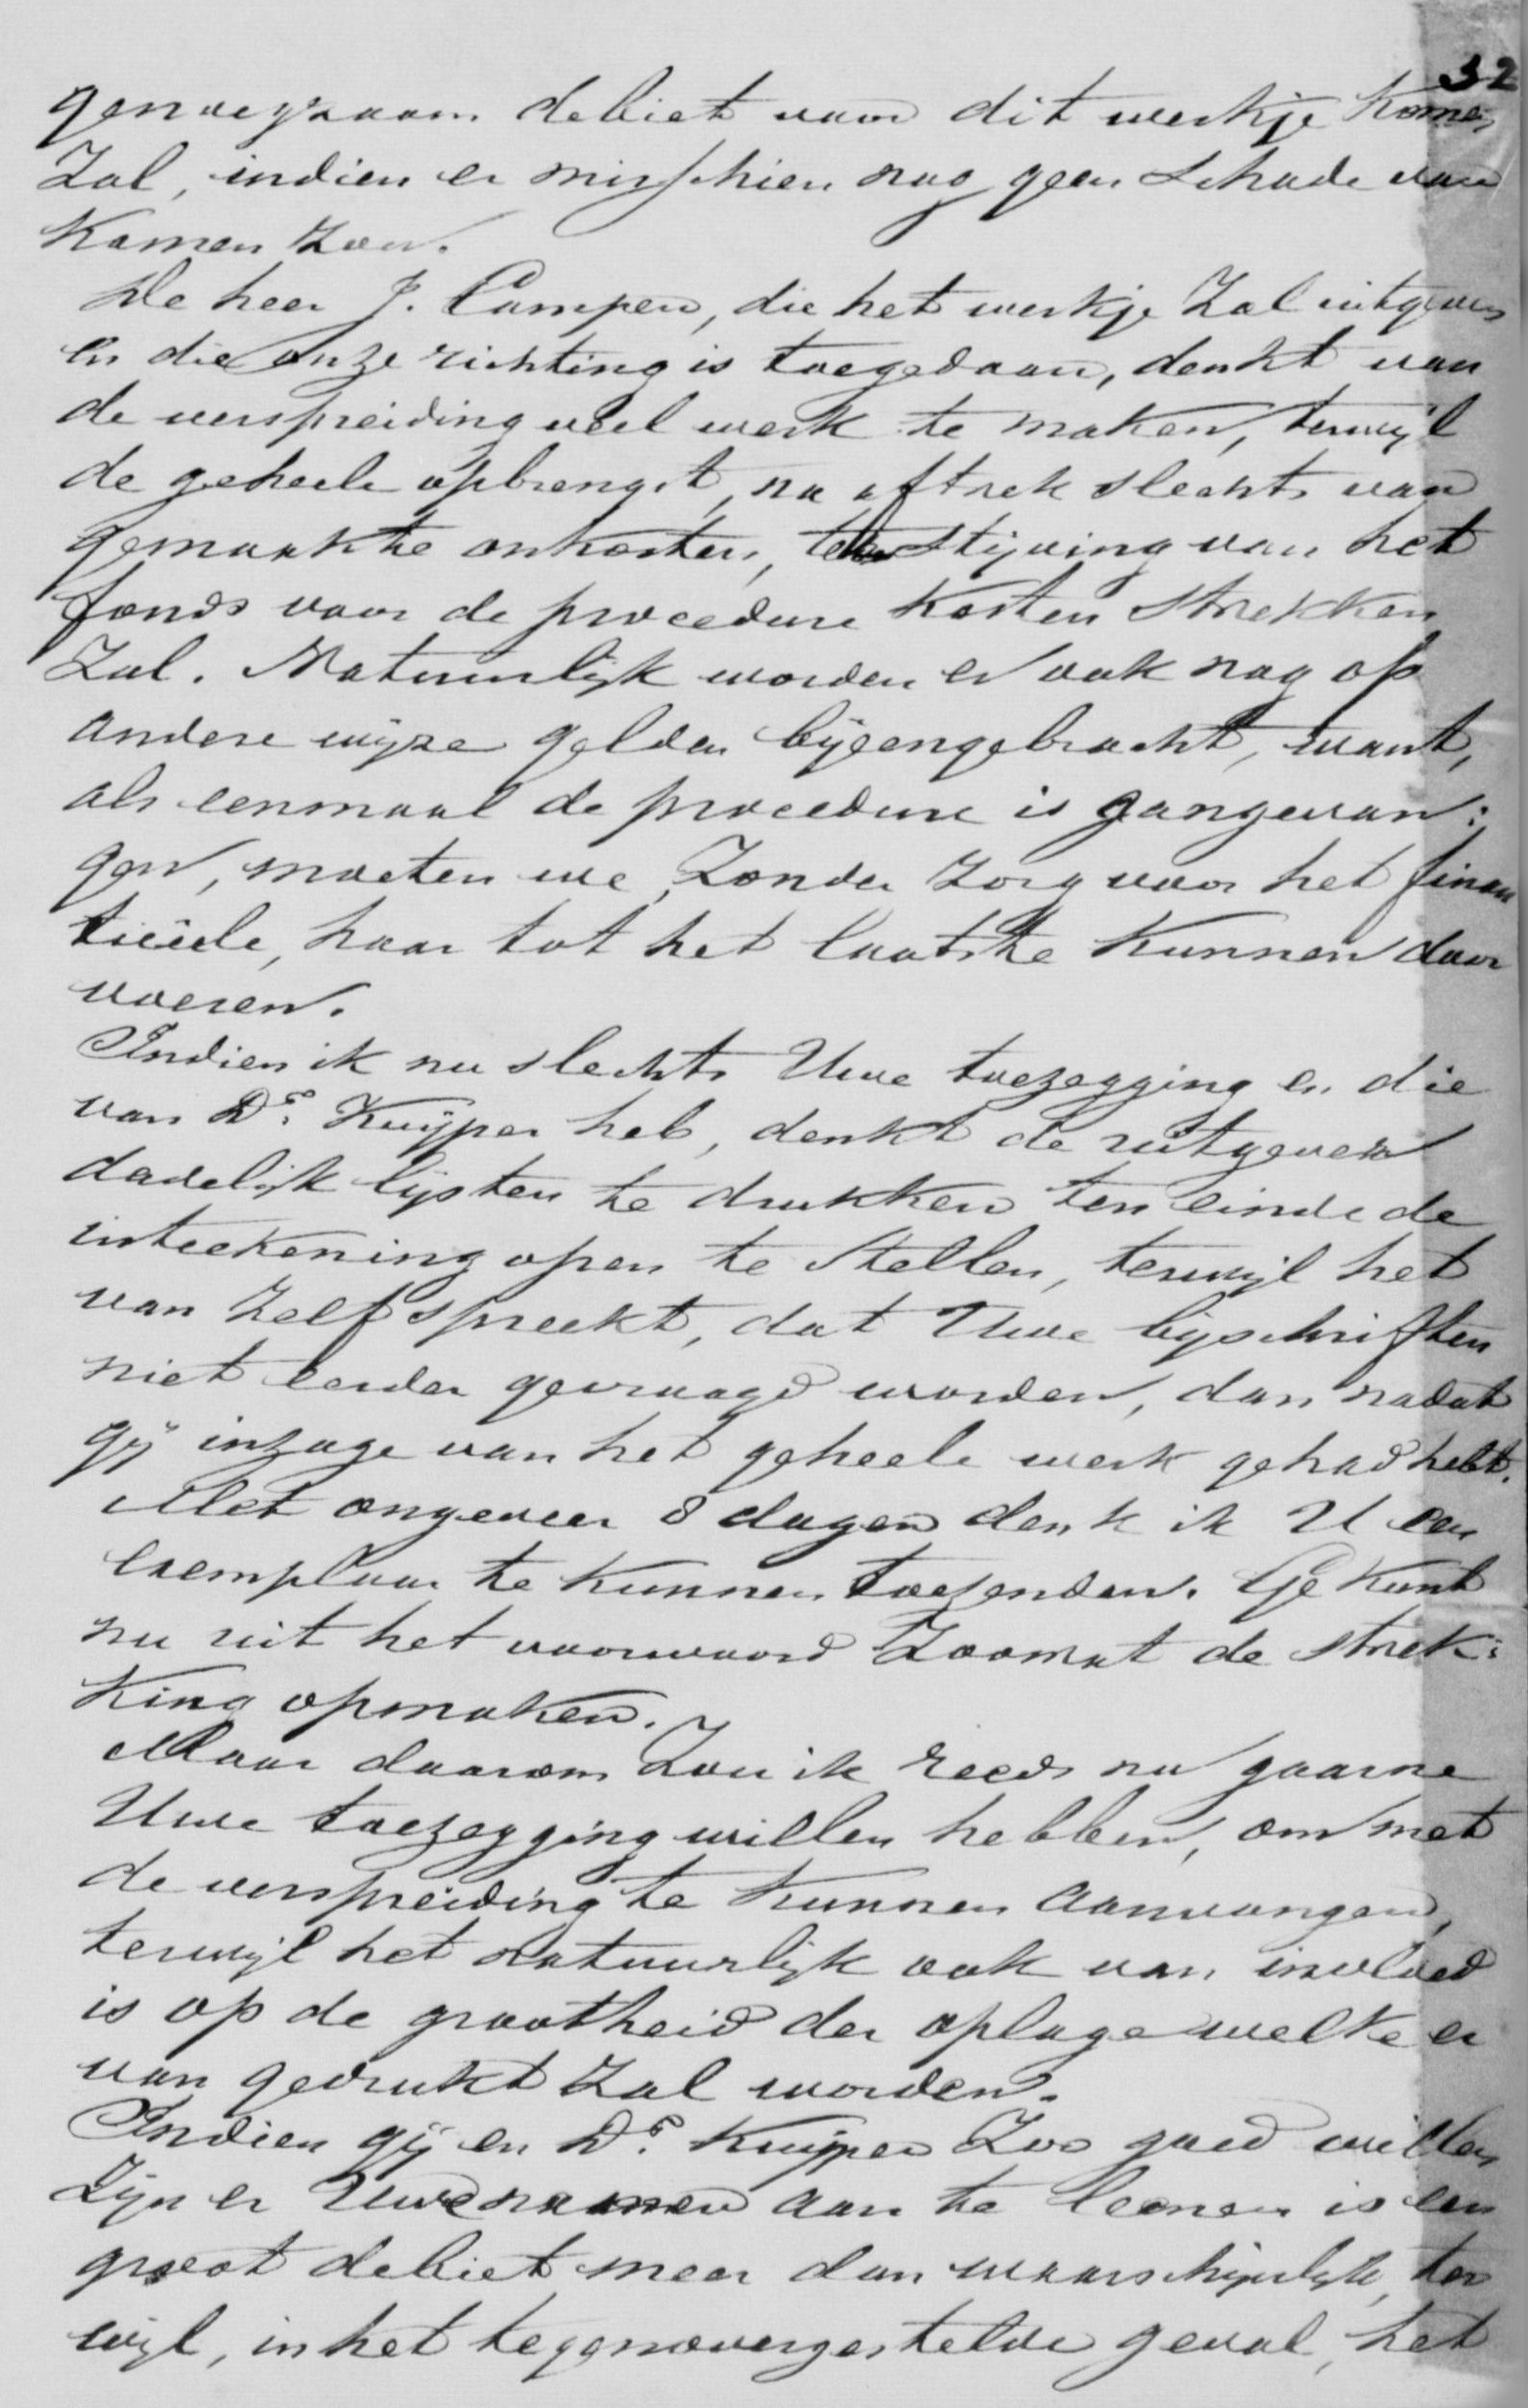 32
genoegzaam debiet voor dit werkje komen
Zal, indien er misschien nog geen schade van
Komen zou.
De heer J. Campen, die het werkje Zal uitgeven
en die onze richting is toegedaan, denkt van
de verspreiding veel werk te maken, terwijl
de geheele opbrengst, na aftrek slechts van
gemaakte onkosten, ter stijving van het
fonds voor de procedure Kosten strekken
Zal. Natuurlijk worden er ook nog op
andere wijze gelden bijeengebracht, want,
als eenmaal de procedure is gangevan:
gen, moeten we, Zonder Zorg voor het finan
tieële, haar tot het laatste Kunnen door
voeren.
Indien ik nu slechts Uwe toezegging en die
van Ds. Kuijper heb, denkt de uitgever
dadelijk lijsten te drukken ten einde de
inteekening open te stellen, terwijl het
van Zelf spreekt, dat Uwe bijschriften
niet eerder gevraagd worden, dan nadat
gij inzage van het geheele werk gehad hebt.
Met ongeveer 8 dagen denk ik U een
exemplaar te Kunnen toezenden. Ge Kunt
nu uit het voorwoord Zoowat de strek:
King opmaken.
Maar daarom Zou ik reeds nu gaarne
Uwe toezegging willen hebben, om met
de verspreiding te Kunnen aanvangen,
terwijl het natuurlijk ook van invloed
is op de grootheid der oplage welke er
van gedrukt Zal worden.
Indien gij en Ds. Kuijper Zoo goed willen
Zijn er Uwe namen aan te leenen is een
groot debiet meer dan waarschijnlijk, ter
wijl, in het tegenovergestelde geval, het